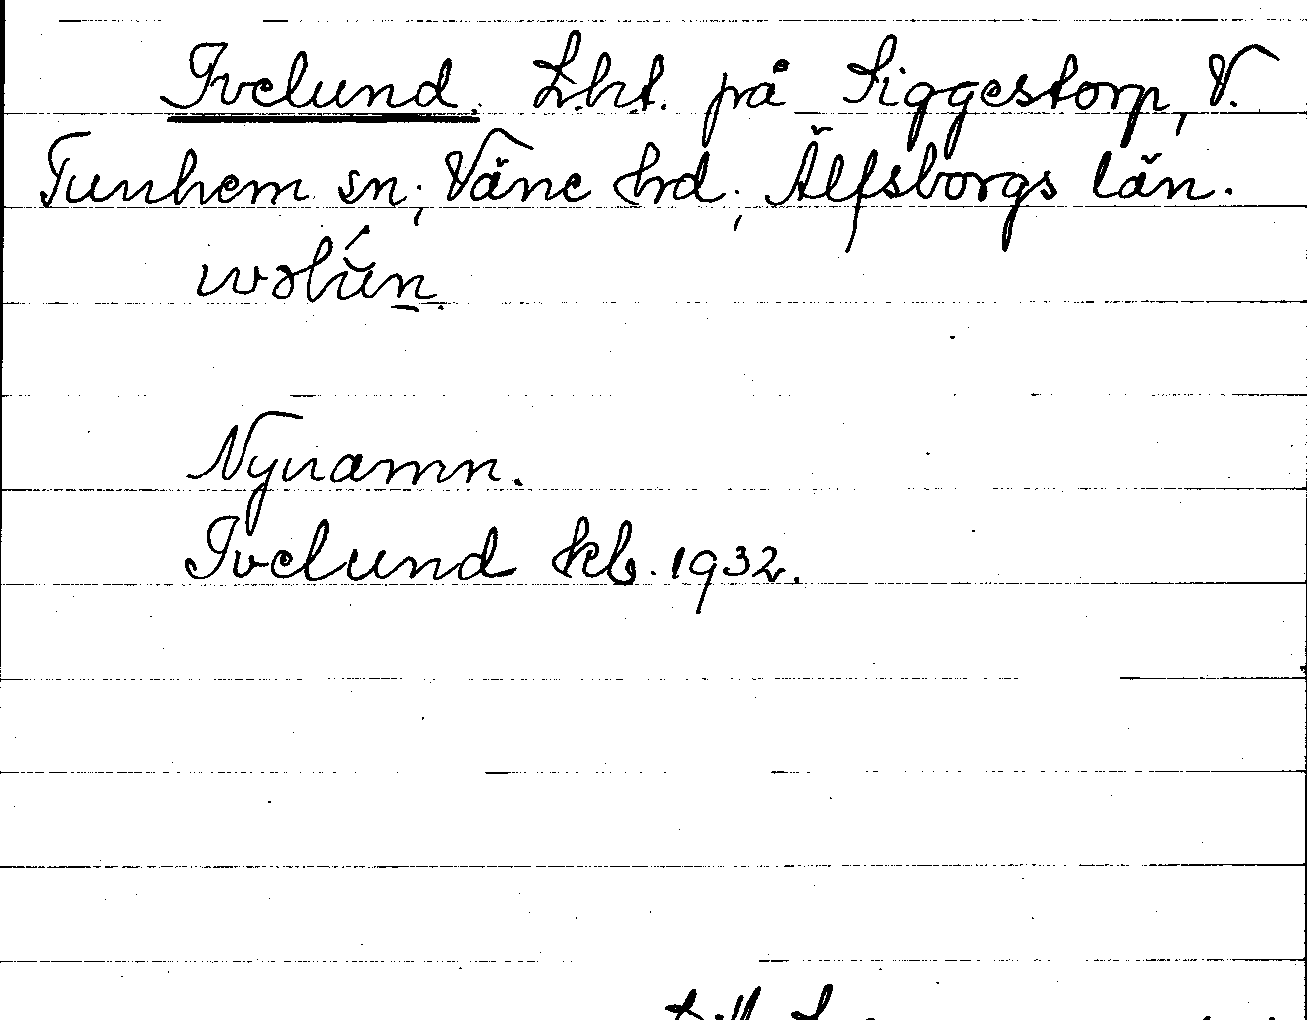 Ivelund. L.ht. på Siggestorp, V.
Tunhem sn; Väne hrd; Älfsborgs län.
Nynamn.
Ivelund kb. 1932.